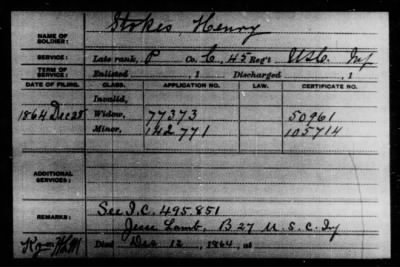 NAME OF SOLDIER: Stokes, Henry
SERVICE: Late rank, P Co. C, 43 Reg't U.S.C. Inf
TERM OF SERVICE: Enlisted , 1 Discharged , 1
DATE OF FILING. CLASS. APPLICATION NO. LAW. CERTIFICATE NO.
Invalid,
1864 Dec 28 Widow, 77373 50961
Minor, 142771 105714
ADDITIONAL SERVICES:
REMARKS: See I.C. 495.851
Jesse Lamb, B 27 U.S.C. Inf
Died Dec 12, 1864, at